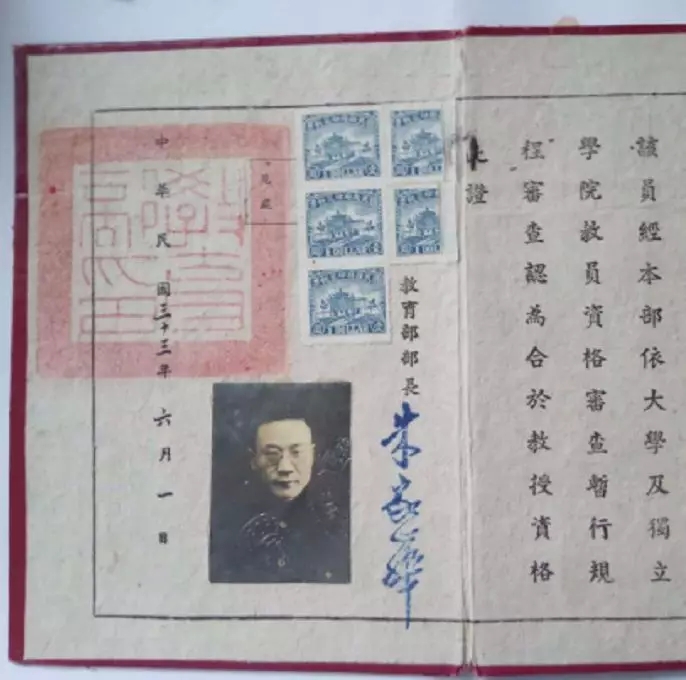 該員經本部依大學及獨立
學院教員資格審查暫行規
程審查認為合於教授資格
證
教育部部長 朱家驊
1 DOLLAR
1 DOLLAR
1 DOLLAR
1 DOLLAR
1 DOLLAR
中華民國三十三年六月一日